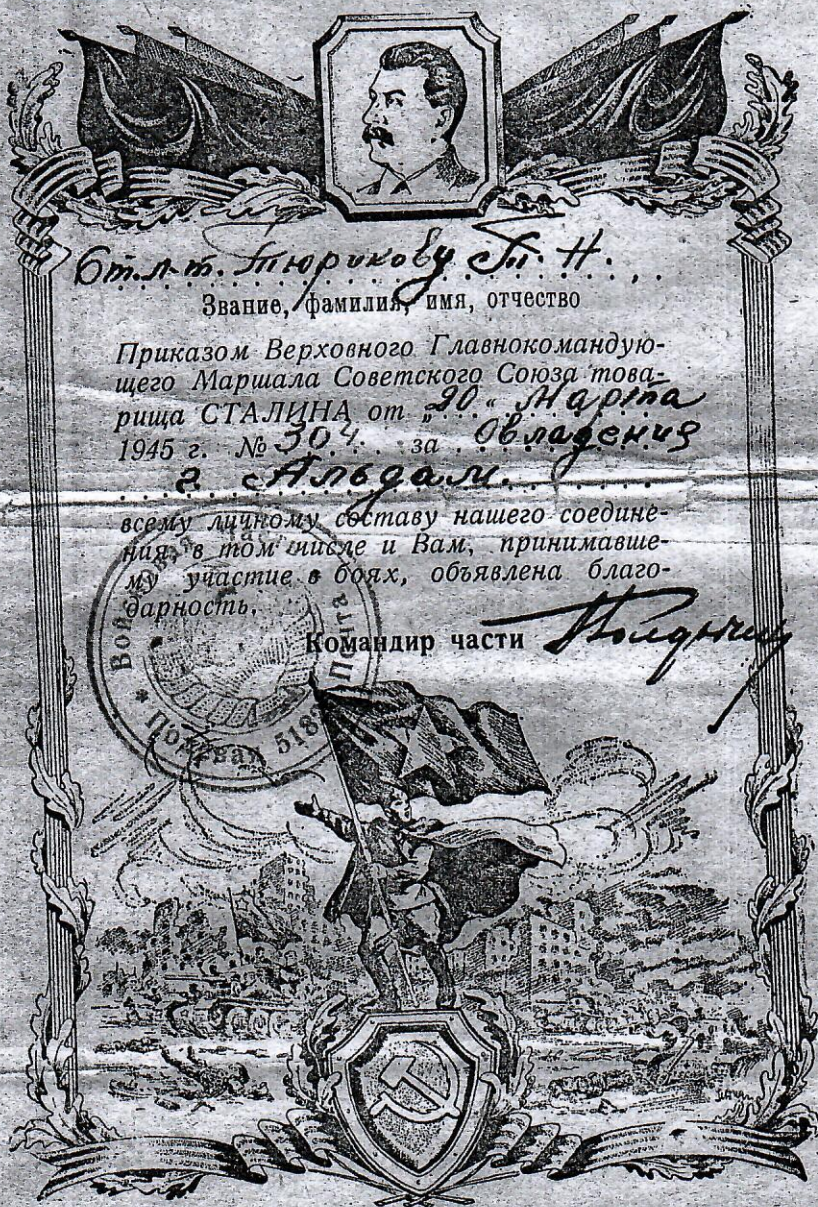 Ст. л-т. Тюрикову Т. Н.
Звание, фамилия, имя, отчество
Приказом Верховного Главнокомандую-
щего Маршала Советского Союза това-
рища СТАЛИНА от „20“ Марта
1945 г. № 304 за Овладения
г Альдам
всему личному составу нашего соедине-
ния, в том числе и Вам, принимавше-
му участие в боях, объявлена благо-
дарность.
Командир части
Почта